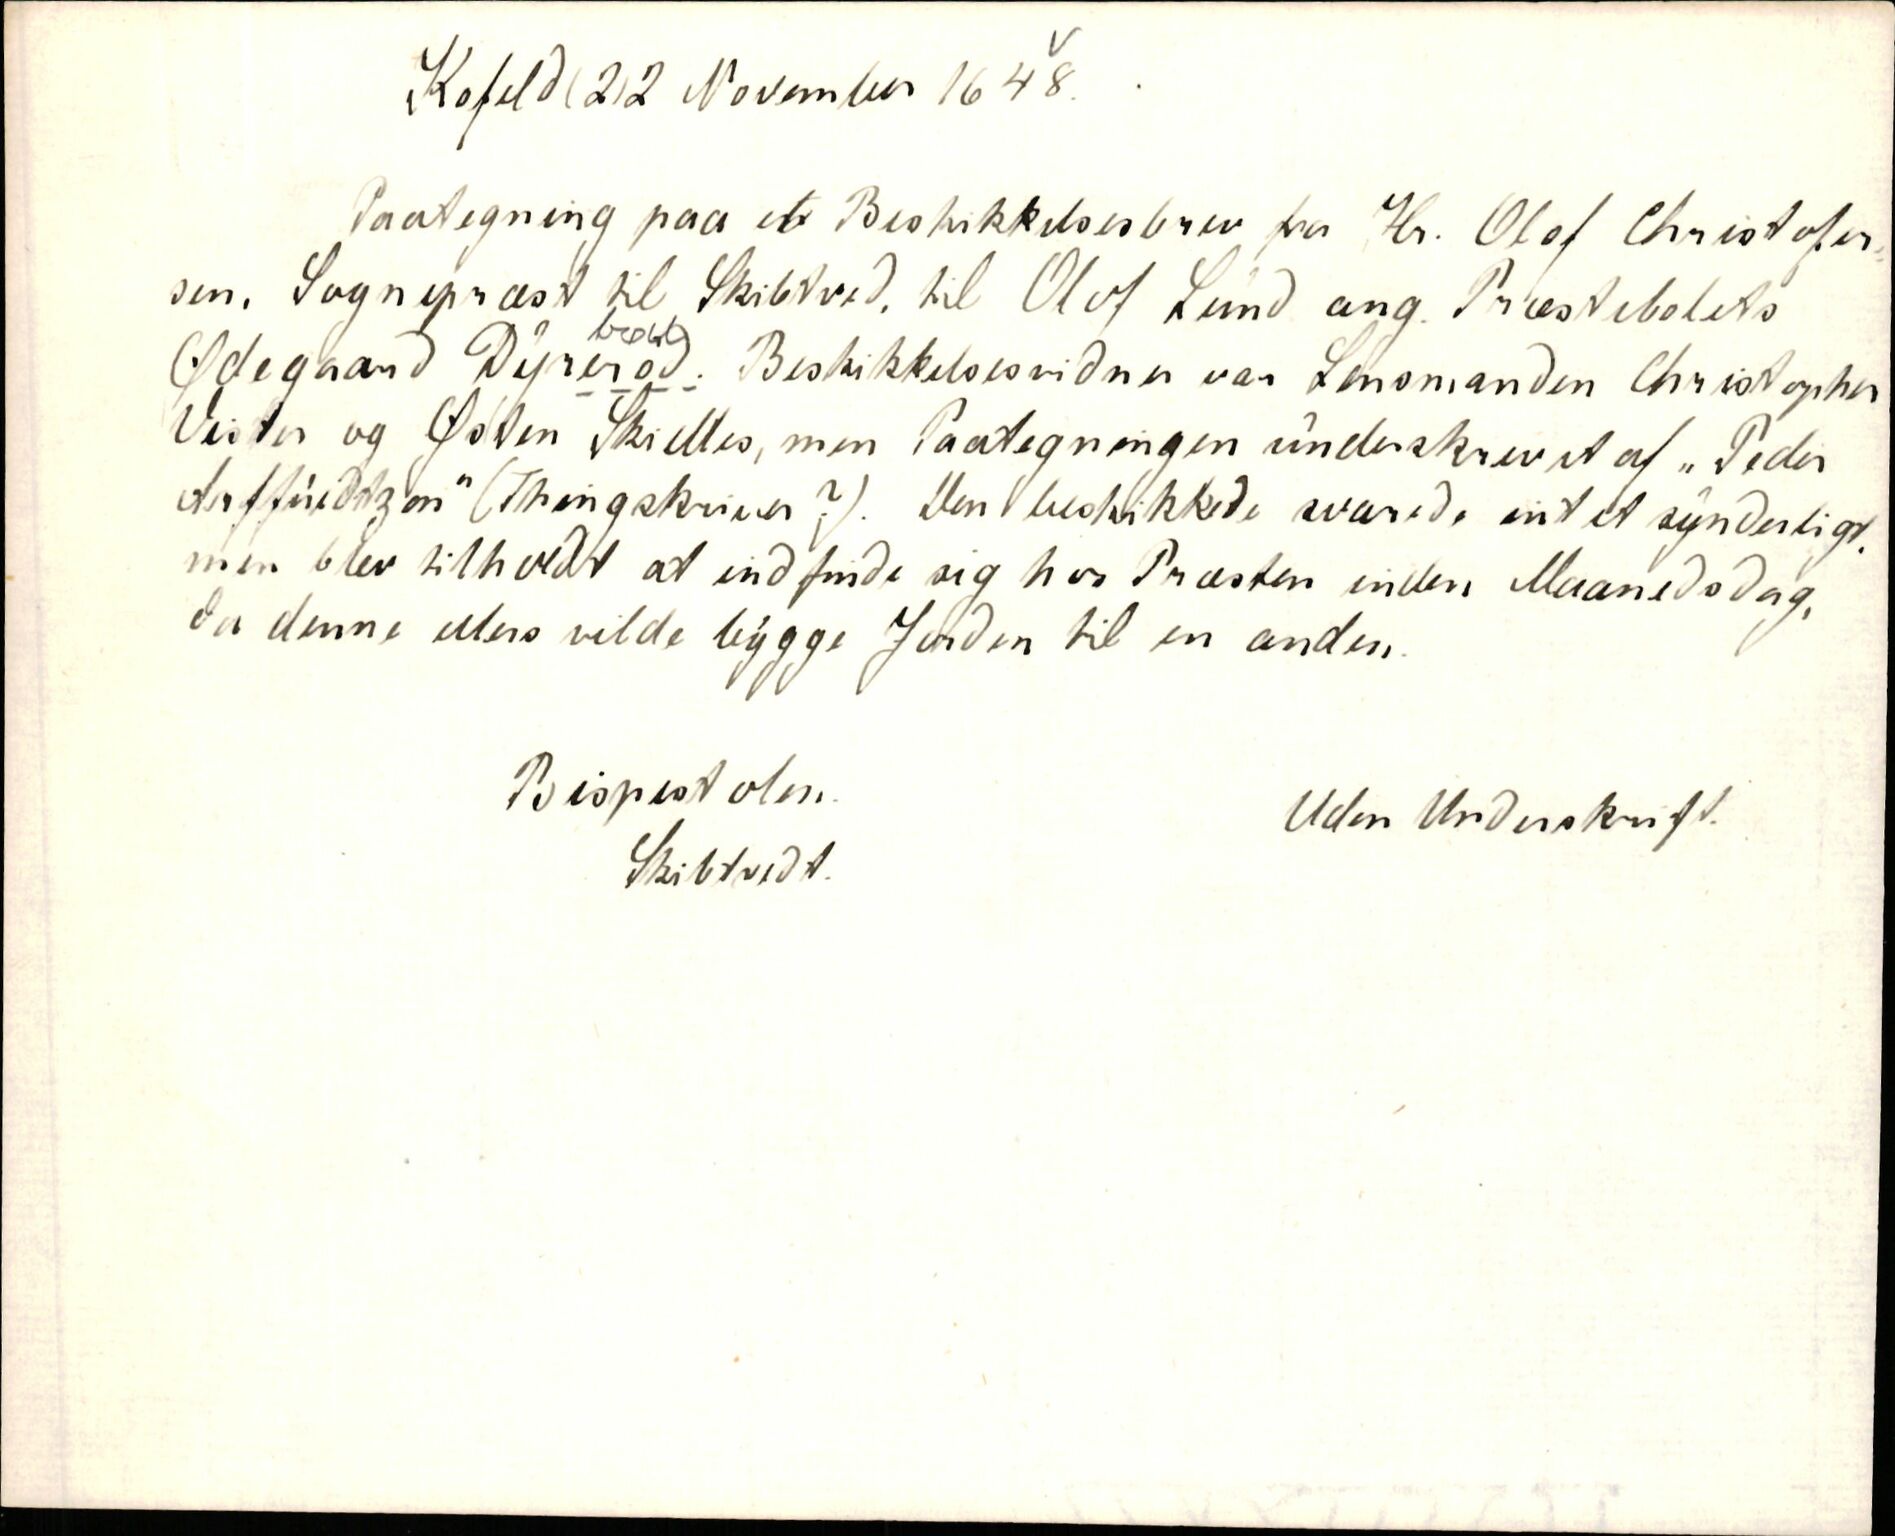 Kofeld (2)2 November 1648.
Paategning paa et Beskikkelsesbrev fra Hr. Olof Christofer-
sen, Sognepræst til Skibtved, til Olof Lund ang. Præstebolets
Ødegaard Dyrerød. Beskikkelsesvidner var Lensmanden Christopher
Vister og Østen Skielles, men Paategningen underskrevet af „Peder
Arffuedtzøn" (Thingskriver?). Den beskikkede svarede intet synderligt,
men blev tilholdt at indfinde sig hos Præsten inden Maanedsdag,
da denne ellers vilde bygge Jorden til en anden.
Bispestolen.
Uden Underskrift.
Skibtvedt.